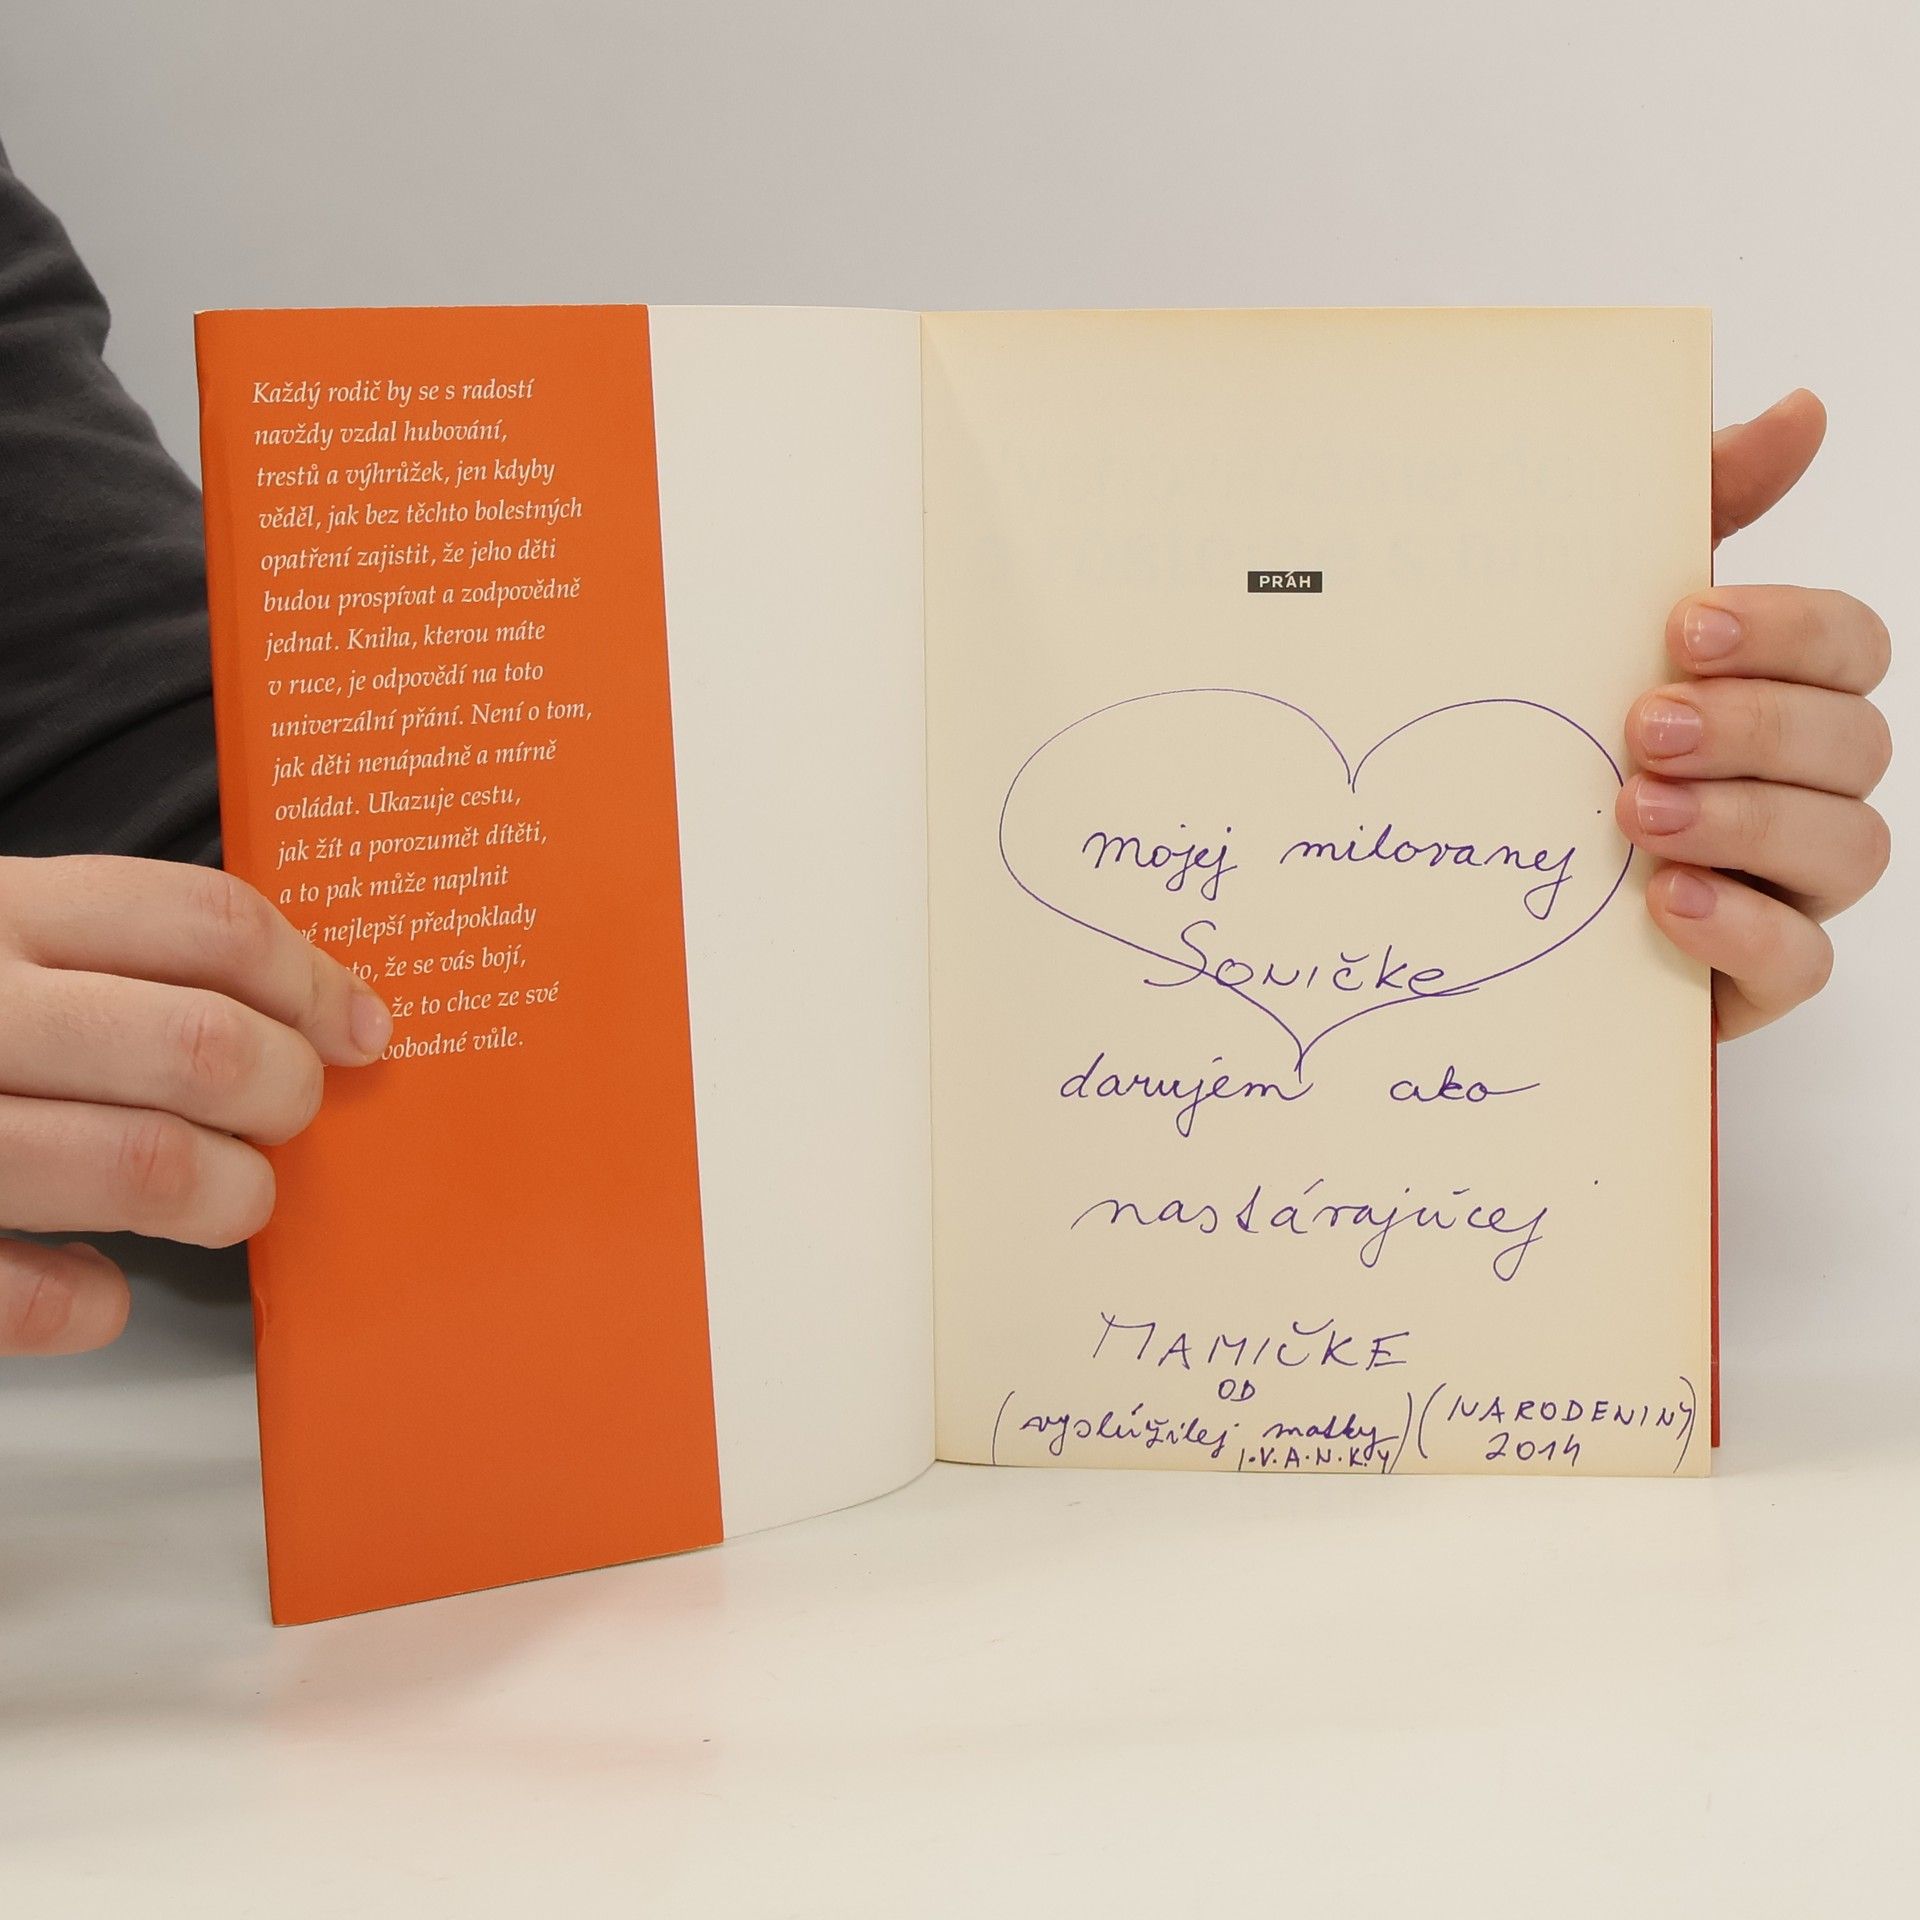 Každý rodič by se s radostí
navždy vzdal hubování,
trestů a výhrůžek, jen kdyby
věděl, jak bez těchto bolestných
opatření zajistit, že jeho děti
budou prospívat a zodpovědně
jednat. Kniha, kterou máte
v ruce, je odpovědí na toto
univerzální přání. Není o tom,
jak děti nenápadně a mírně
ovládat. Ukazuje cestu,
jak žít a porozumět dítěti,
a to pak může naplnit
nejlepší předpoklady
že se vás bojí,
že to chce ze své
vůle.
PRÁH
mojej milovanej
Soničke
darujem ako
nastárajúcej
MAMIČKE
OD
(vyslúžilej matky
I.V.A.N.K.Y)
(NARODENINY
2014)